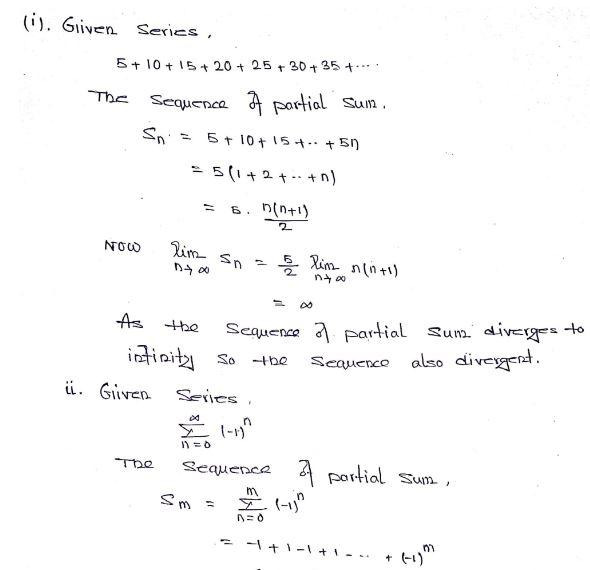 (i). Given Series,
5 + 10 + 15 + 20 + 25 + 30 + 35 + ....
The Sequence of partial sum.
Sn = 5 + 10 + 15 + .. + 5n
= 5 (1 + 2 + .. + n)
= 5 . n(n+1)/2
NOW lim n→∞ Sn = 5/2 lim n→∞ n(n+1)
= ∞
As the Sequence of partial sum diverges to
infinity so the Sequence also divergent.
ii. Given Series,
∞ Σ n=0 (-1)^n
The Sequence of partial sum,
Sm = m Σ n=0 (-1)^n
= -1 + 1 - 1 + 1 - .. + (-1)^m